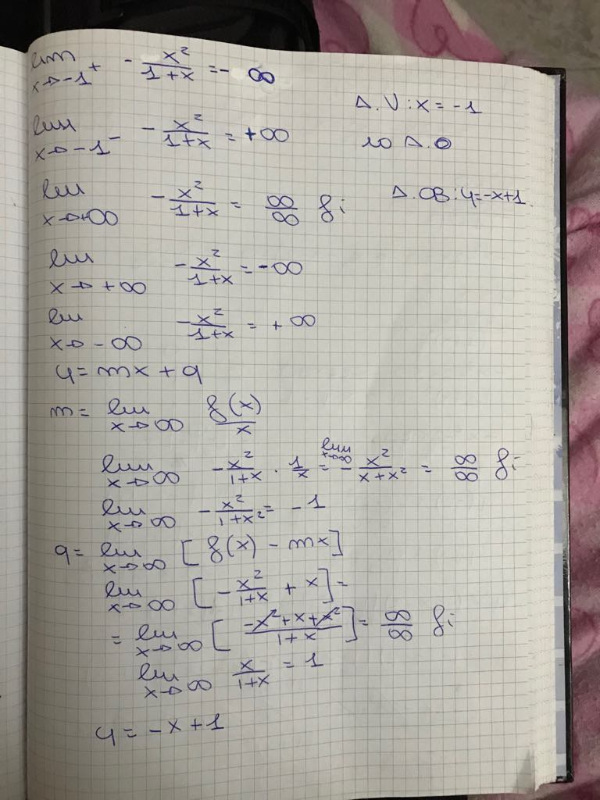 lim x→-1⁺ - x²/(1+x) = - ∞
Δ.V: x = -1
lim x→-1⁻ - x²/(1+x) = +∞
no Δ.O
lim x→+∞ - x²/(1+x) = ∞/∞ f i
Δ.OB: y = -x+1
lim x→+∞ - x²/(1+x) = -∞
lim x→-∞ - x²/(1+x) = +∞
y = mx + q
m = lim x→∞ f(x)/x
lim x→∞ - x²/(1+x) · 1/x = lim x→∞ - x²/(x+x²) = ∞/∞ f i
lim x→∞ - x²/(1+x²) = -1
q = lim x→∞ [f(x) - mx]
lim x→∞ [- x²/(1+x) + x] =
= lim x→∞ [(-x²+x+x²)/(1+x)] = ∞/∞ f i
lim x→∞ x/(1+x) = 1
y = -x+1